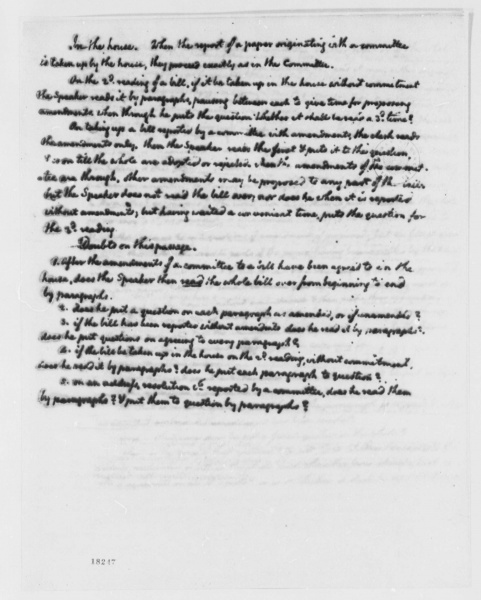 In the house. When the report of a paper originating with a committee
is taken up by the house, they proceed exactly as in the Committee.
On the 2d. reading of a bill, if it be taken up in the house without commitment
the Speaker reads it by paragraphs, pausing between each to give time for proposing
amendments. when through he puts the question whether it shall be read a 3d. time?
On taking up a bill reported by a committee with amendments, the clerk reads
the amendments only. then the Speaker reads the first & puts it to the question,
& so on till the whole are adopted or rejected. when the amendments of the commit-
-tee are through, other amendments may be proposed to any part of the bill
but the Speaker does not read the bill over; nor does he when it is reported
without amendmts; but having waited a convenient time, puts the question for
the 3d. reading
Doubts on this passage.
1. After the amendments of a committee to a bill have been agreed to in the
house, does the Speaker then read the whole bill over from beginning to end
by paragraphs.
2. does he put a question on each paragraph as amended, or if unamended?
3. if the bill has been reported without amendmts does he read it by paragraphs.
does he put questions on agreeing to every paragraph?
4. if the bill be taken up in the house on the 2d. reading, without commitment,
does he read it by paragraphs? does he put each paragraph to question?
5. on an address, resolution &c. reported by a committee, does he read them
by paragraphs? & put them to question by paragraphs?
18247